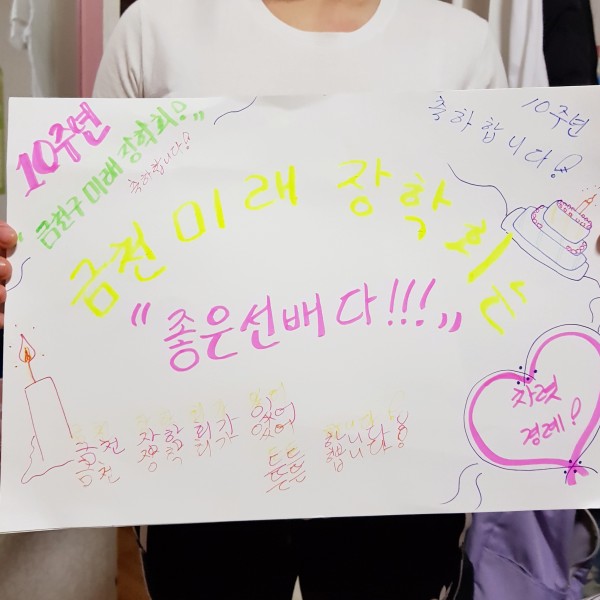 10주년
"금천구 미래 장학회"
축하합니다!
10주년
축하합니다!
금천미래 장학회는
"좋은선배다!!!"
금천 장학회가 있어
든든합니다!
차렷
경례!